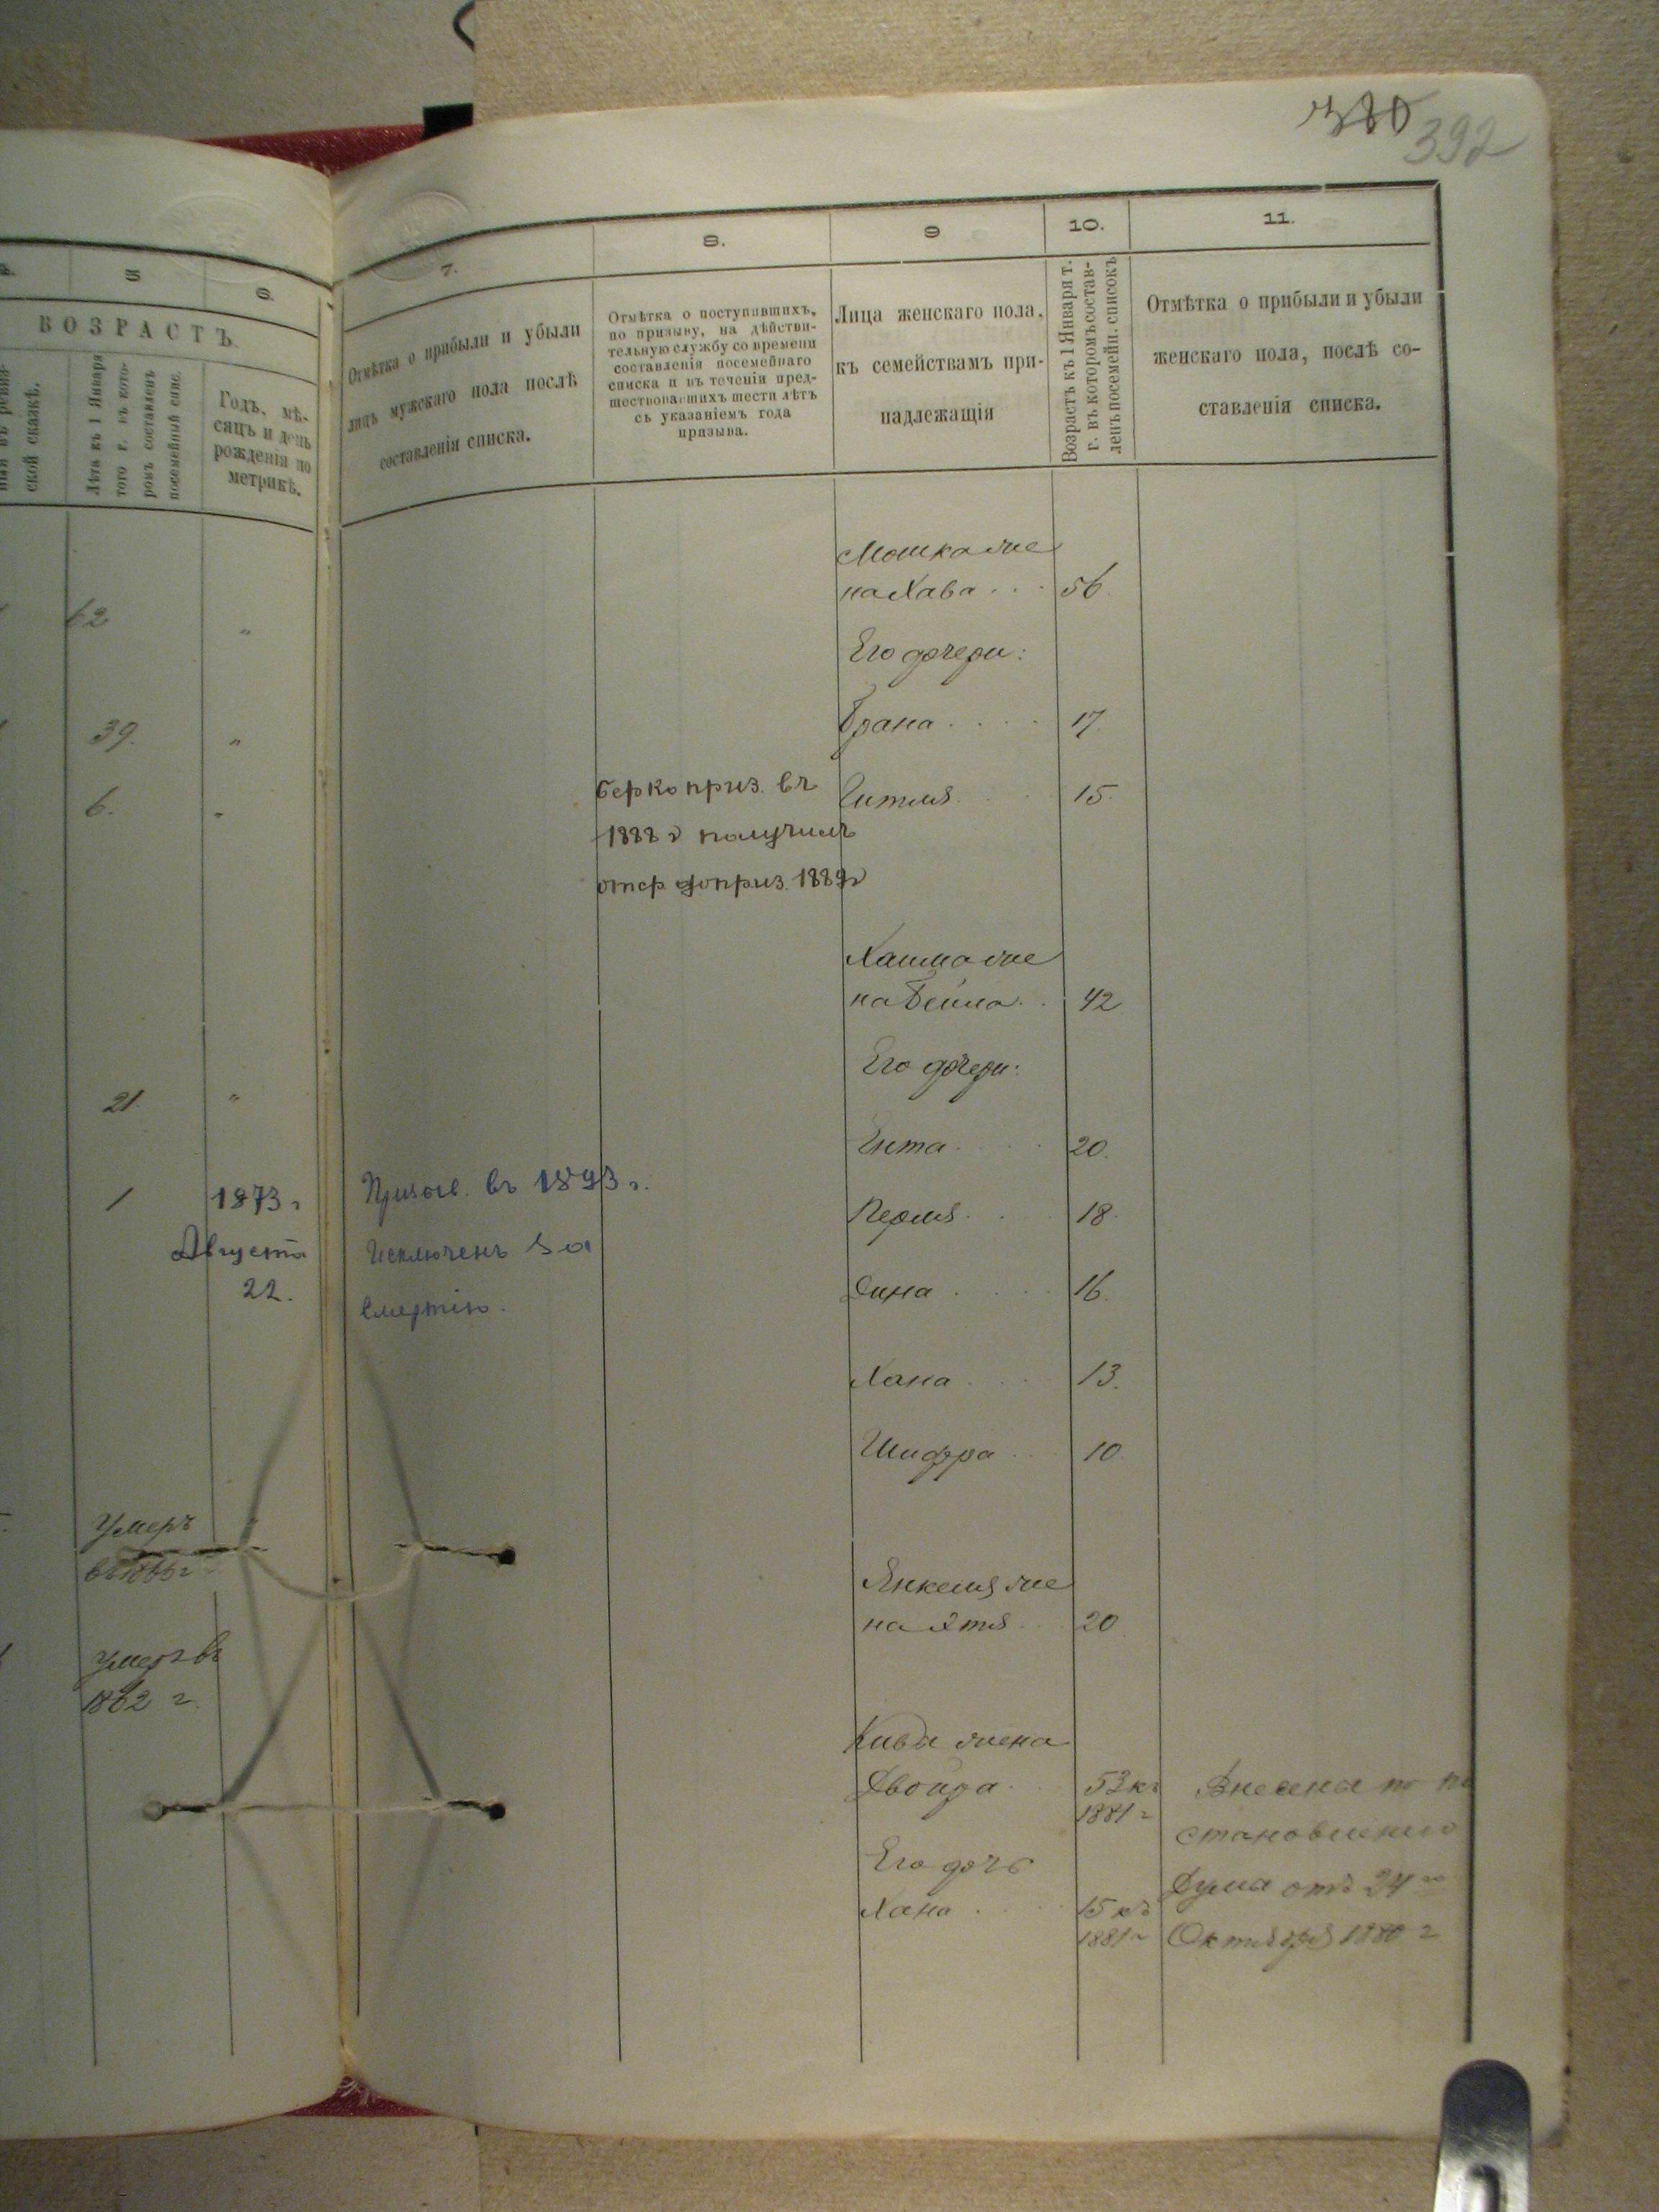 380
392
5
6.
ВОЗРАСТЪ.
ской сказкѣ.
Лѣта къ 1 Января
того г. въ кото-
ромъ составленъ
посемейный спис.
Годъ, мѣ-
сяцъ и день
рожденія по
метрикѣ.
62 "
39. "
6. "
21. "
1 1873 г
Августа
22.
Умеръ
Умеръ въ
1862 г.
7.
8.
9
10.
11.
Отмѣтка о прибыли и убыли
лицъ мужскаго пола послѣ
составленія списка.
Отмѣтка о поступившихъ,
по призыву, на дѣйстви-
тельную службу со времени
составленія посемейнаго
списка и въ теченіи пред-
шествовавшихъ шести лѣтъ
съ указаніемъ года
призыва.
Лица женскаго пола,
къ семействамъ при-
надлежащія
Возрастъ къ 1 Января т.
г. въ которомъ состав-
ленъ посемейн. списокъ
Отмѣтка о прибыли и убыли
женскаго пола, послѣ со-
ставленія списка.
Мошка же
на Хава . . . 56.
Его дочери:
Брана . . . . 17.
Берко приз. въ
1888 г получилъ
отср. до приз. 1889 г
Гитля . . . 15.
Хаима же
на Бейла . . 42
Его дочери:
Ента . . . . 20.
Призыв. въ 1893 г.
Исключенъ за
смертію.
Перля . . . 18.
Дина . . . . 16.
Хана . . . . 13.
Шифра . . . 10.
Янкеля же
на Этя . . . 20.
Кивы жена
Двойра . . . 53 къ
1881 г
Его дочь
Хана . . . . 15 къ
1881 г
Внесена по по
становленію
Думы отъ 24 го
Октября 1880 г